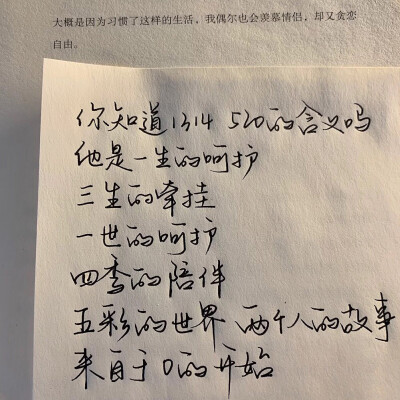 大概是因为习惯了这样的生活，我偶尔也会羡慕情侣，却又贪恋
自由。
你知道1314 520的含义吗
他是一生的呵护
三生的牵挂
一世的呵护
四季的陪伴
五彩的世界 两个人的故事
来自于0的开始